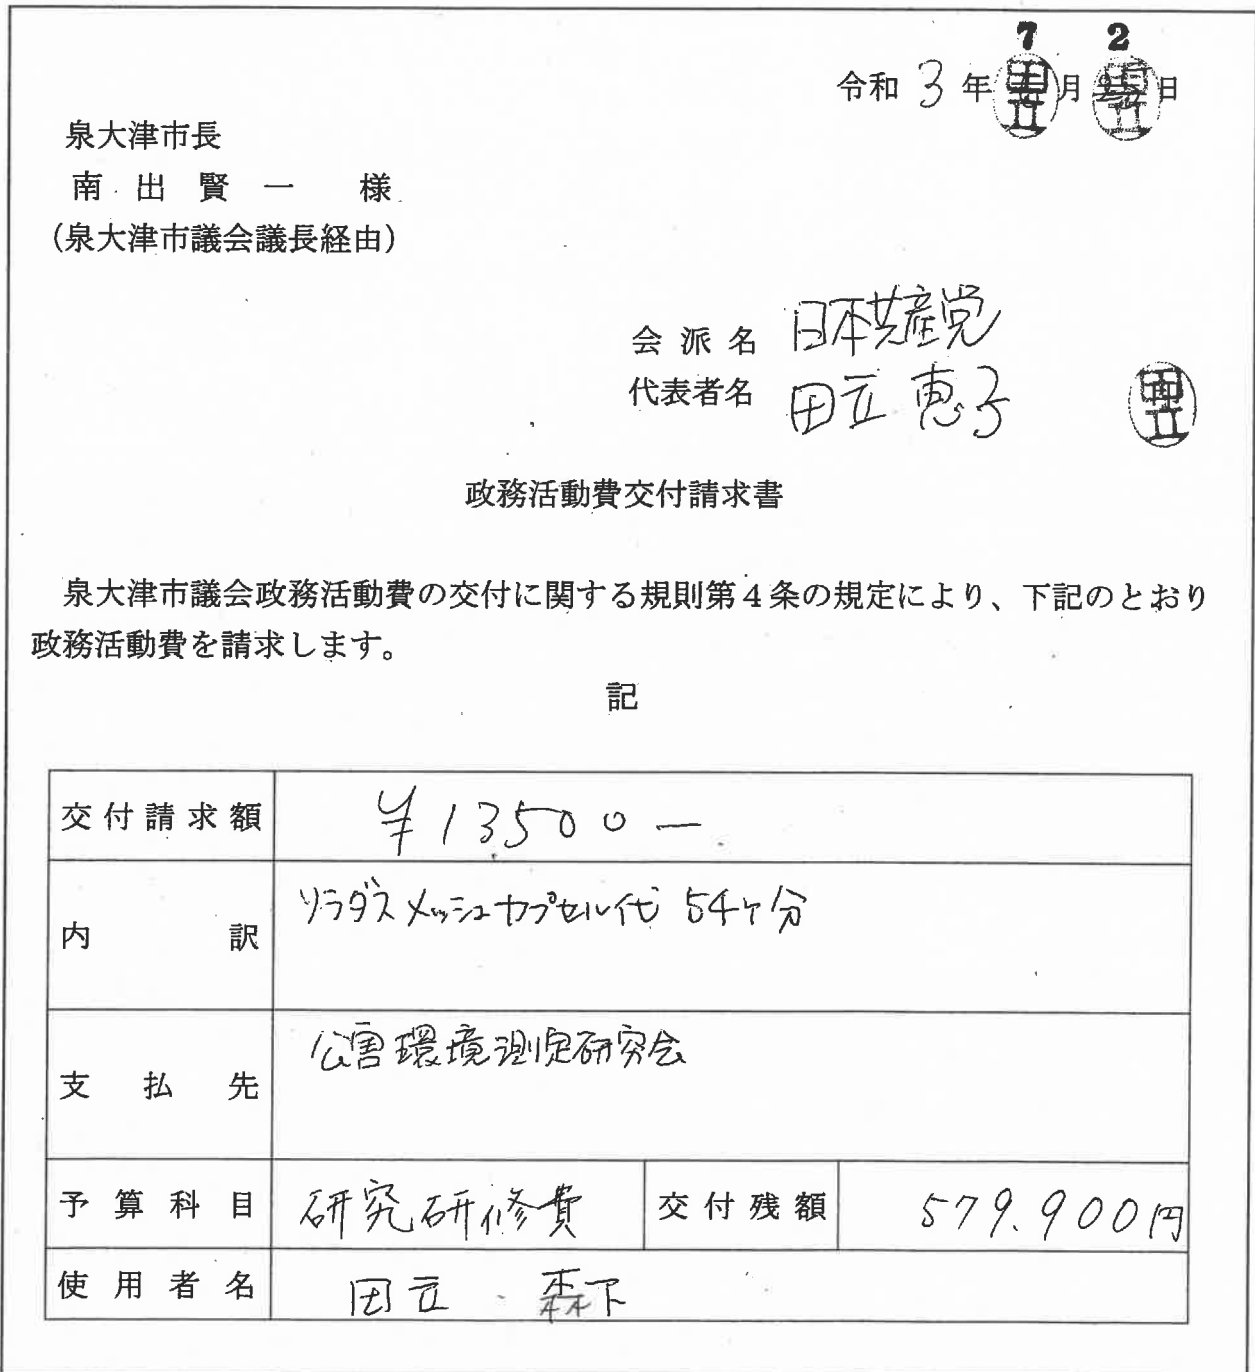 7 2
令和 3 年 月 日
泉大津市長
南出賢一 様
(泉大津市議会議長経由)
会派名 日本共産党
代表者名 田立恵子
政務活動費交付請求書
泉大津市議会政務活動費の交付に関する規則第4条の規定により、下記のとおり
政務活動費を請求します。
記
交付請求額 ¥13500-
内訳 ソラダスメッシュカプセル代 54ヶ分
支払先 公害環境測定研究会
予算科目 研究研修費 交付残額 579.900円
使用者名 田立 森下